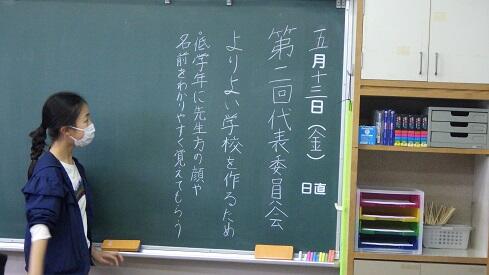 五月十三日（金）
日直
第二回代表委員会
よりよい学校を作るため
・低学年に先生方の顔や
名前をわかりやすく覚えてもらう